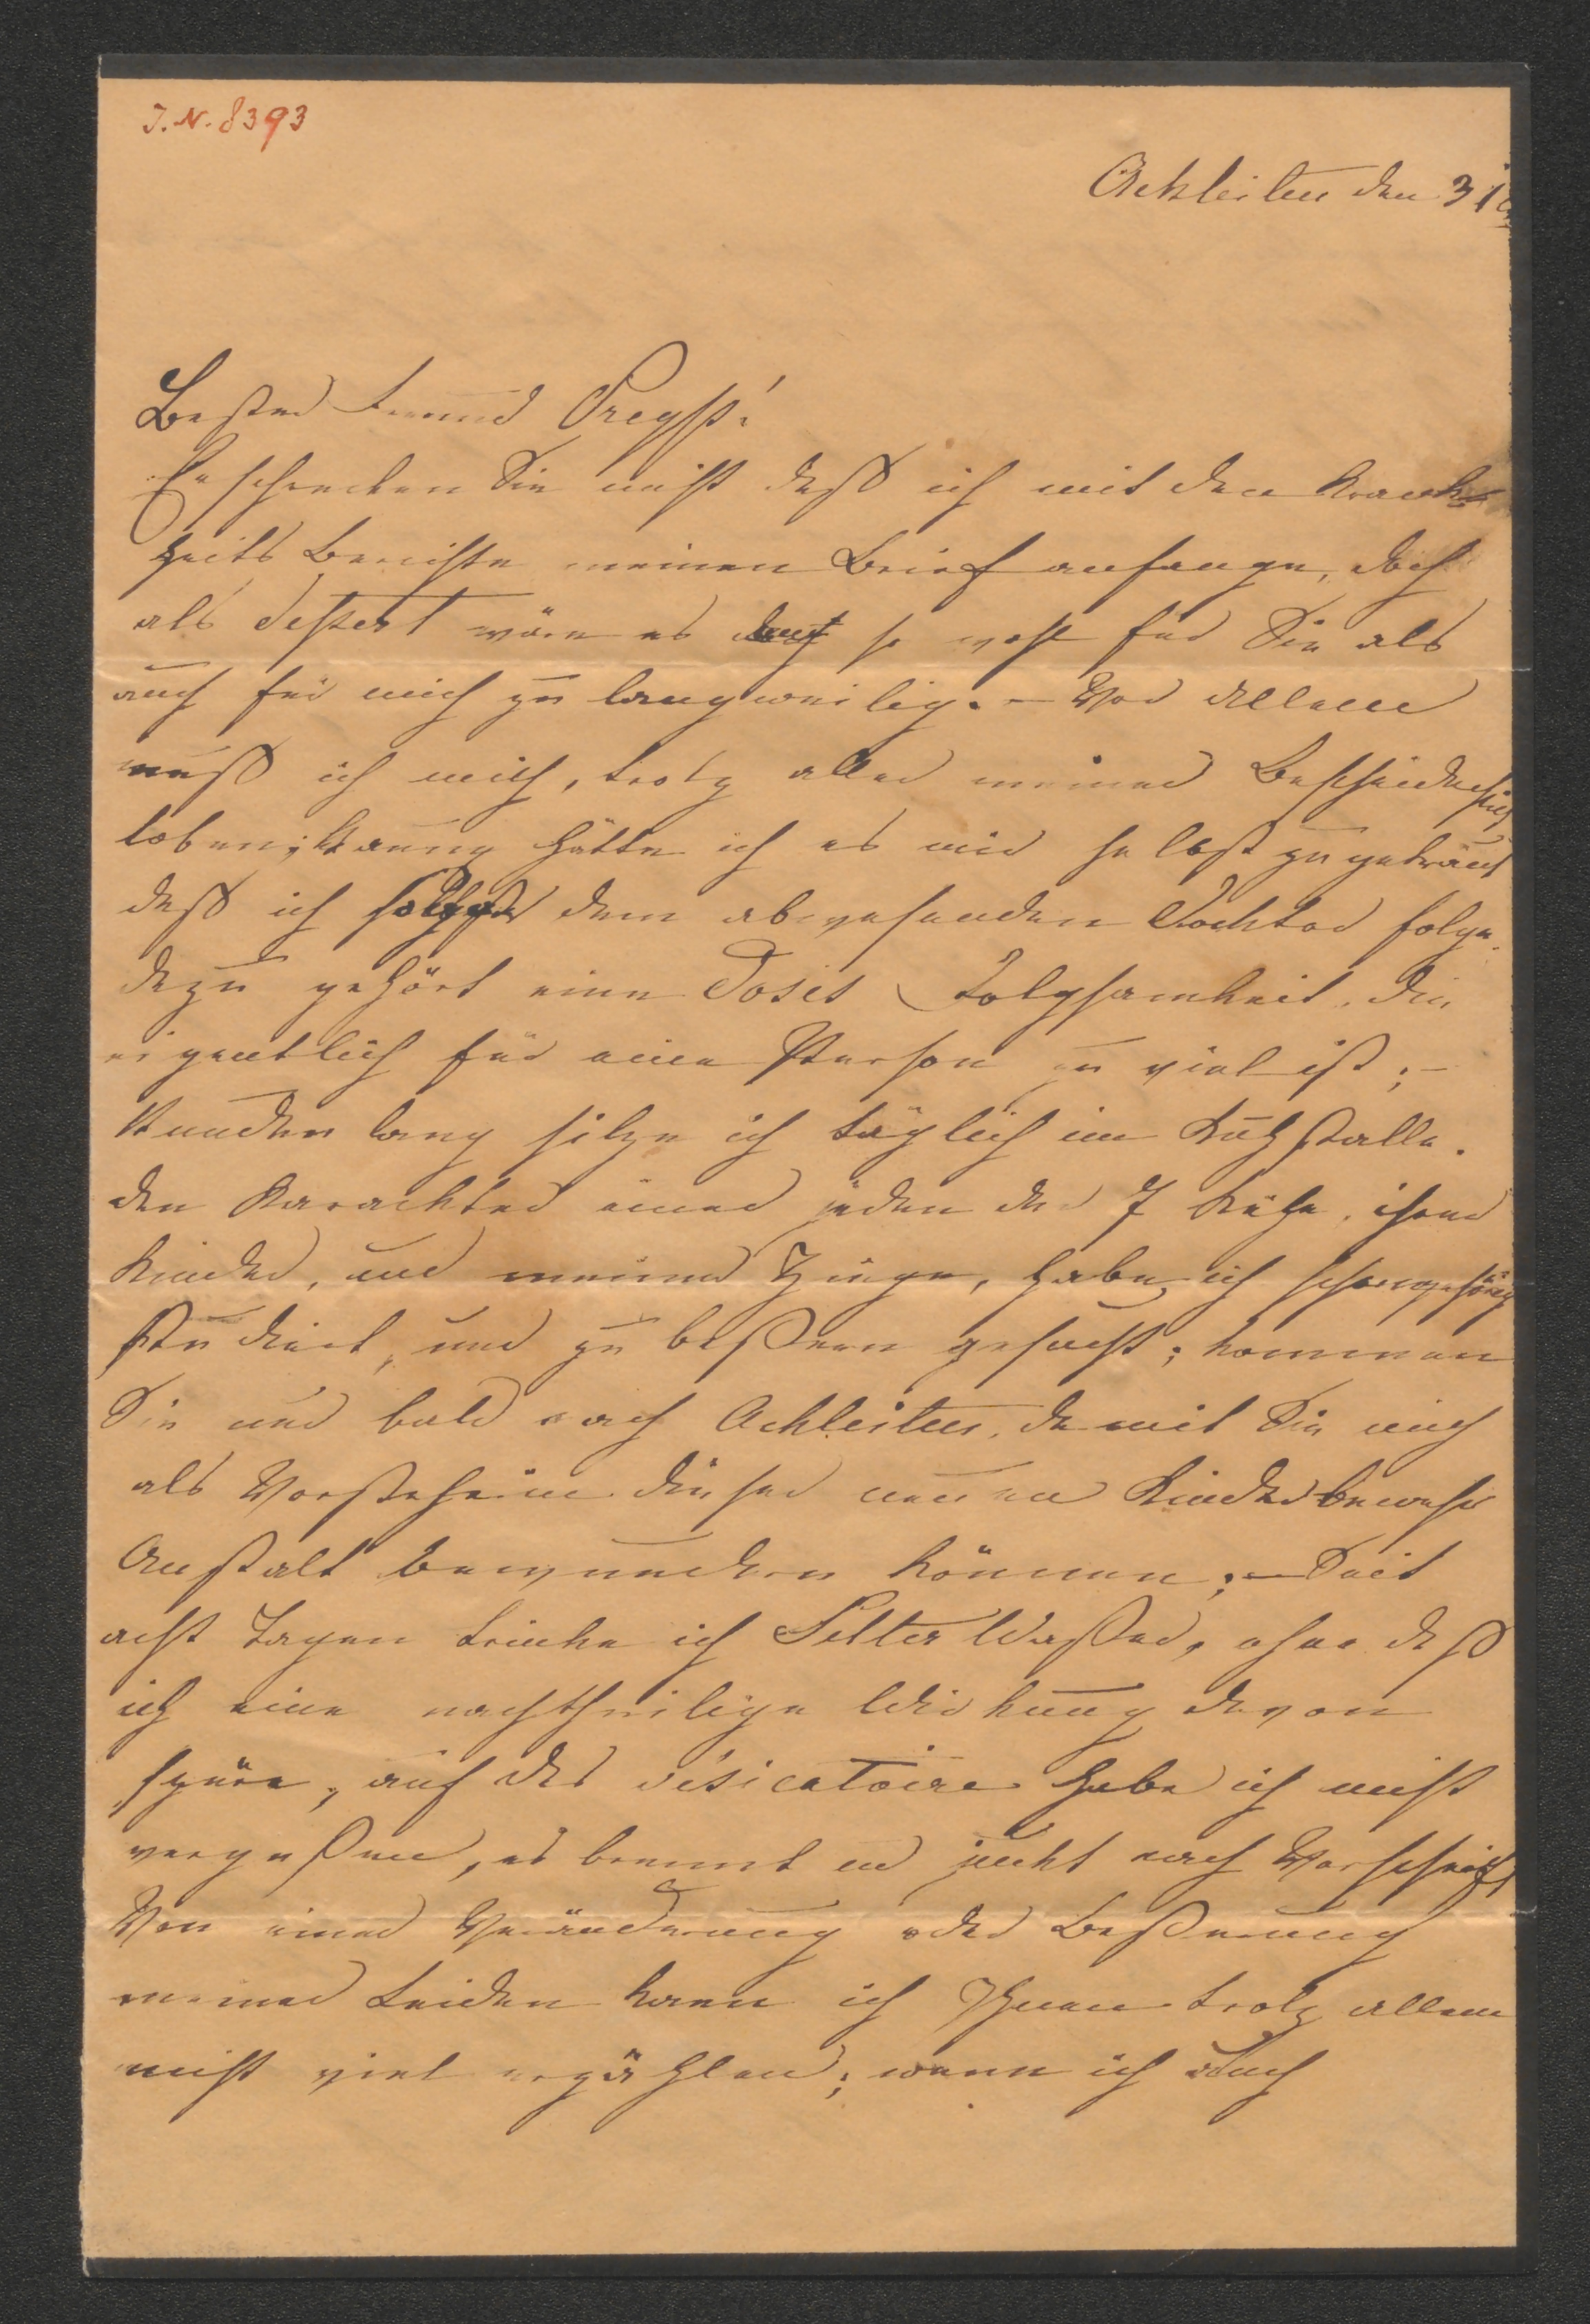 J. N. 8393
Achleiten den 31
Bester Freund Preyß!
Erschrecken Sie nicht daß ich mit den Krank-
heits Berichte meinen Brief anfange, doch
als Dessert wäre es so wohl für Sie als
auch für mich zu langweilig. – Vor allem
muß ich mich, trotz aller meiner Bescheidenheit
loben; kaum hätte ich es mir selbst zugetraut
daß ich dem abwesenden Docktor folge.
dazu gehört eine Dosis Folgsamkeit, die
eigentlich für eine Person zu viel ist; –
stunden lang sitze ich täglich im Kuhstalle.
den Karackter einer jeden der 7 Kühe, ihrer
Kinder, und meiner Ziege, habe ich schon gehörig
studiert, und zu beßern gesucht; kommen
Sie nur bald nach Achleiten, damit Sie mich
als Vorsteherin dieser neuen Kinderbewahr
Anstalt bewundern können; – Seit
acht Tagen trinke ich Selter Waßer, ohne daß
ich eine nachtheilige Wirkung davon
spüre, auf das vésicatoire habe ich nicht
vergeßen, es brennt und juckt nach Vorschrift
Von einer Veränderung oder Beßerung
meiner Leiden kann ich Ihnen trotz allem
nicht viel erzählen; wenn ich auch